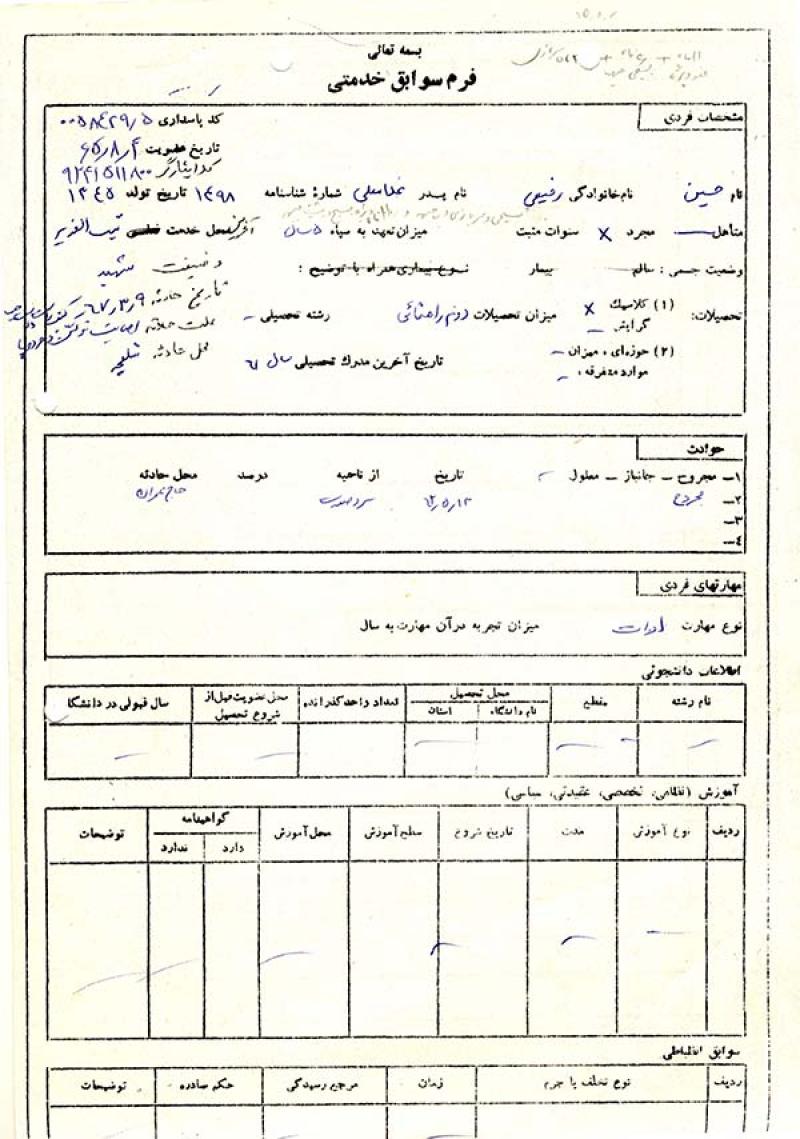 بسمه تعالی
فرم سوابق خدمتی
مشخصات فردی
کد پاسداری ۰۰۵۸۴۲۹/۵
تاریخ عضویت ۶۵/۸/۴
کد ایثارگر ۹۲۴۱۵۱۱۸۰۰
نام حسین نام خانوادگی رفیعی نام پدر غلامعلی شمارهٔ شناسنامه ۱۴۹۸ تاریخ تولد ۱۳۴۵
متأهل مجرد X سنوات مثبت میزان تعهد به سپاه ۵ سال آخرین محل خدمت فعلی تیپ الغدیر
وضعیت جسمی : سالم بیمار نوع بیماری همراه با توضیح : وضعیت شهید
تاریخ حادثه ۶۷/۳/۹
تحصیلات: (۱) کلاسیک X میزان تحصیلات دوم راهنمائی رشته تحصیلی –
گرایش – علت حادثه اصابت ترکش
(۲) حوزه‌ای ، میزان – تاریخ آخرین مدرک تحصیلی سال ۶۱ محل حادثه شلمچه
موارد متفرقه : –
حوادث
۱– مجروح – جانباز – معلول تاریخ از ناحیه درصد محل حادثه
۲– مجروح ۶۲/۵/۱۳ سر و صورت حاج عمران
۳–
۴–
مهارتهای فردی
نوع مهارت ادوات میزان تجربه در آن مهارت به سال
اطلاعات دانشجوئی
نام رشته مقطع محل تحصیل تعداد واحد گذرانده محل عضویت قبل از شروع تحصیل سال قبولی در دانشگاه
نام دانشگاه استان
آموزش (نظامی، تخصصی، عقیدتی، سیاسی)
ردیف نوع آموزش مدت تاریخ شروع سطح آموزش محل آموزش گواهینامه توضیحات
دارد ندارد
سوابق انظباطی
ردیف نوع تخلف یا جرم زمان مرجع رسیدگی حکم صادره توضیحات